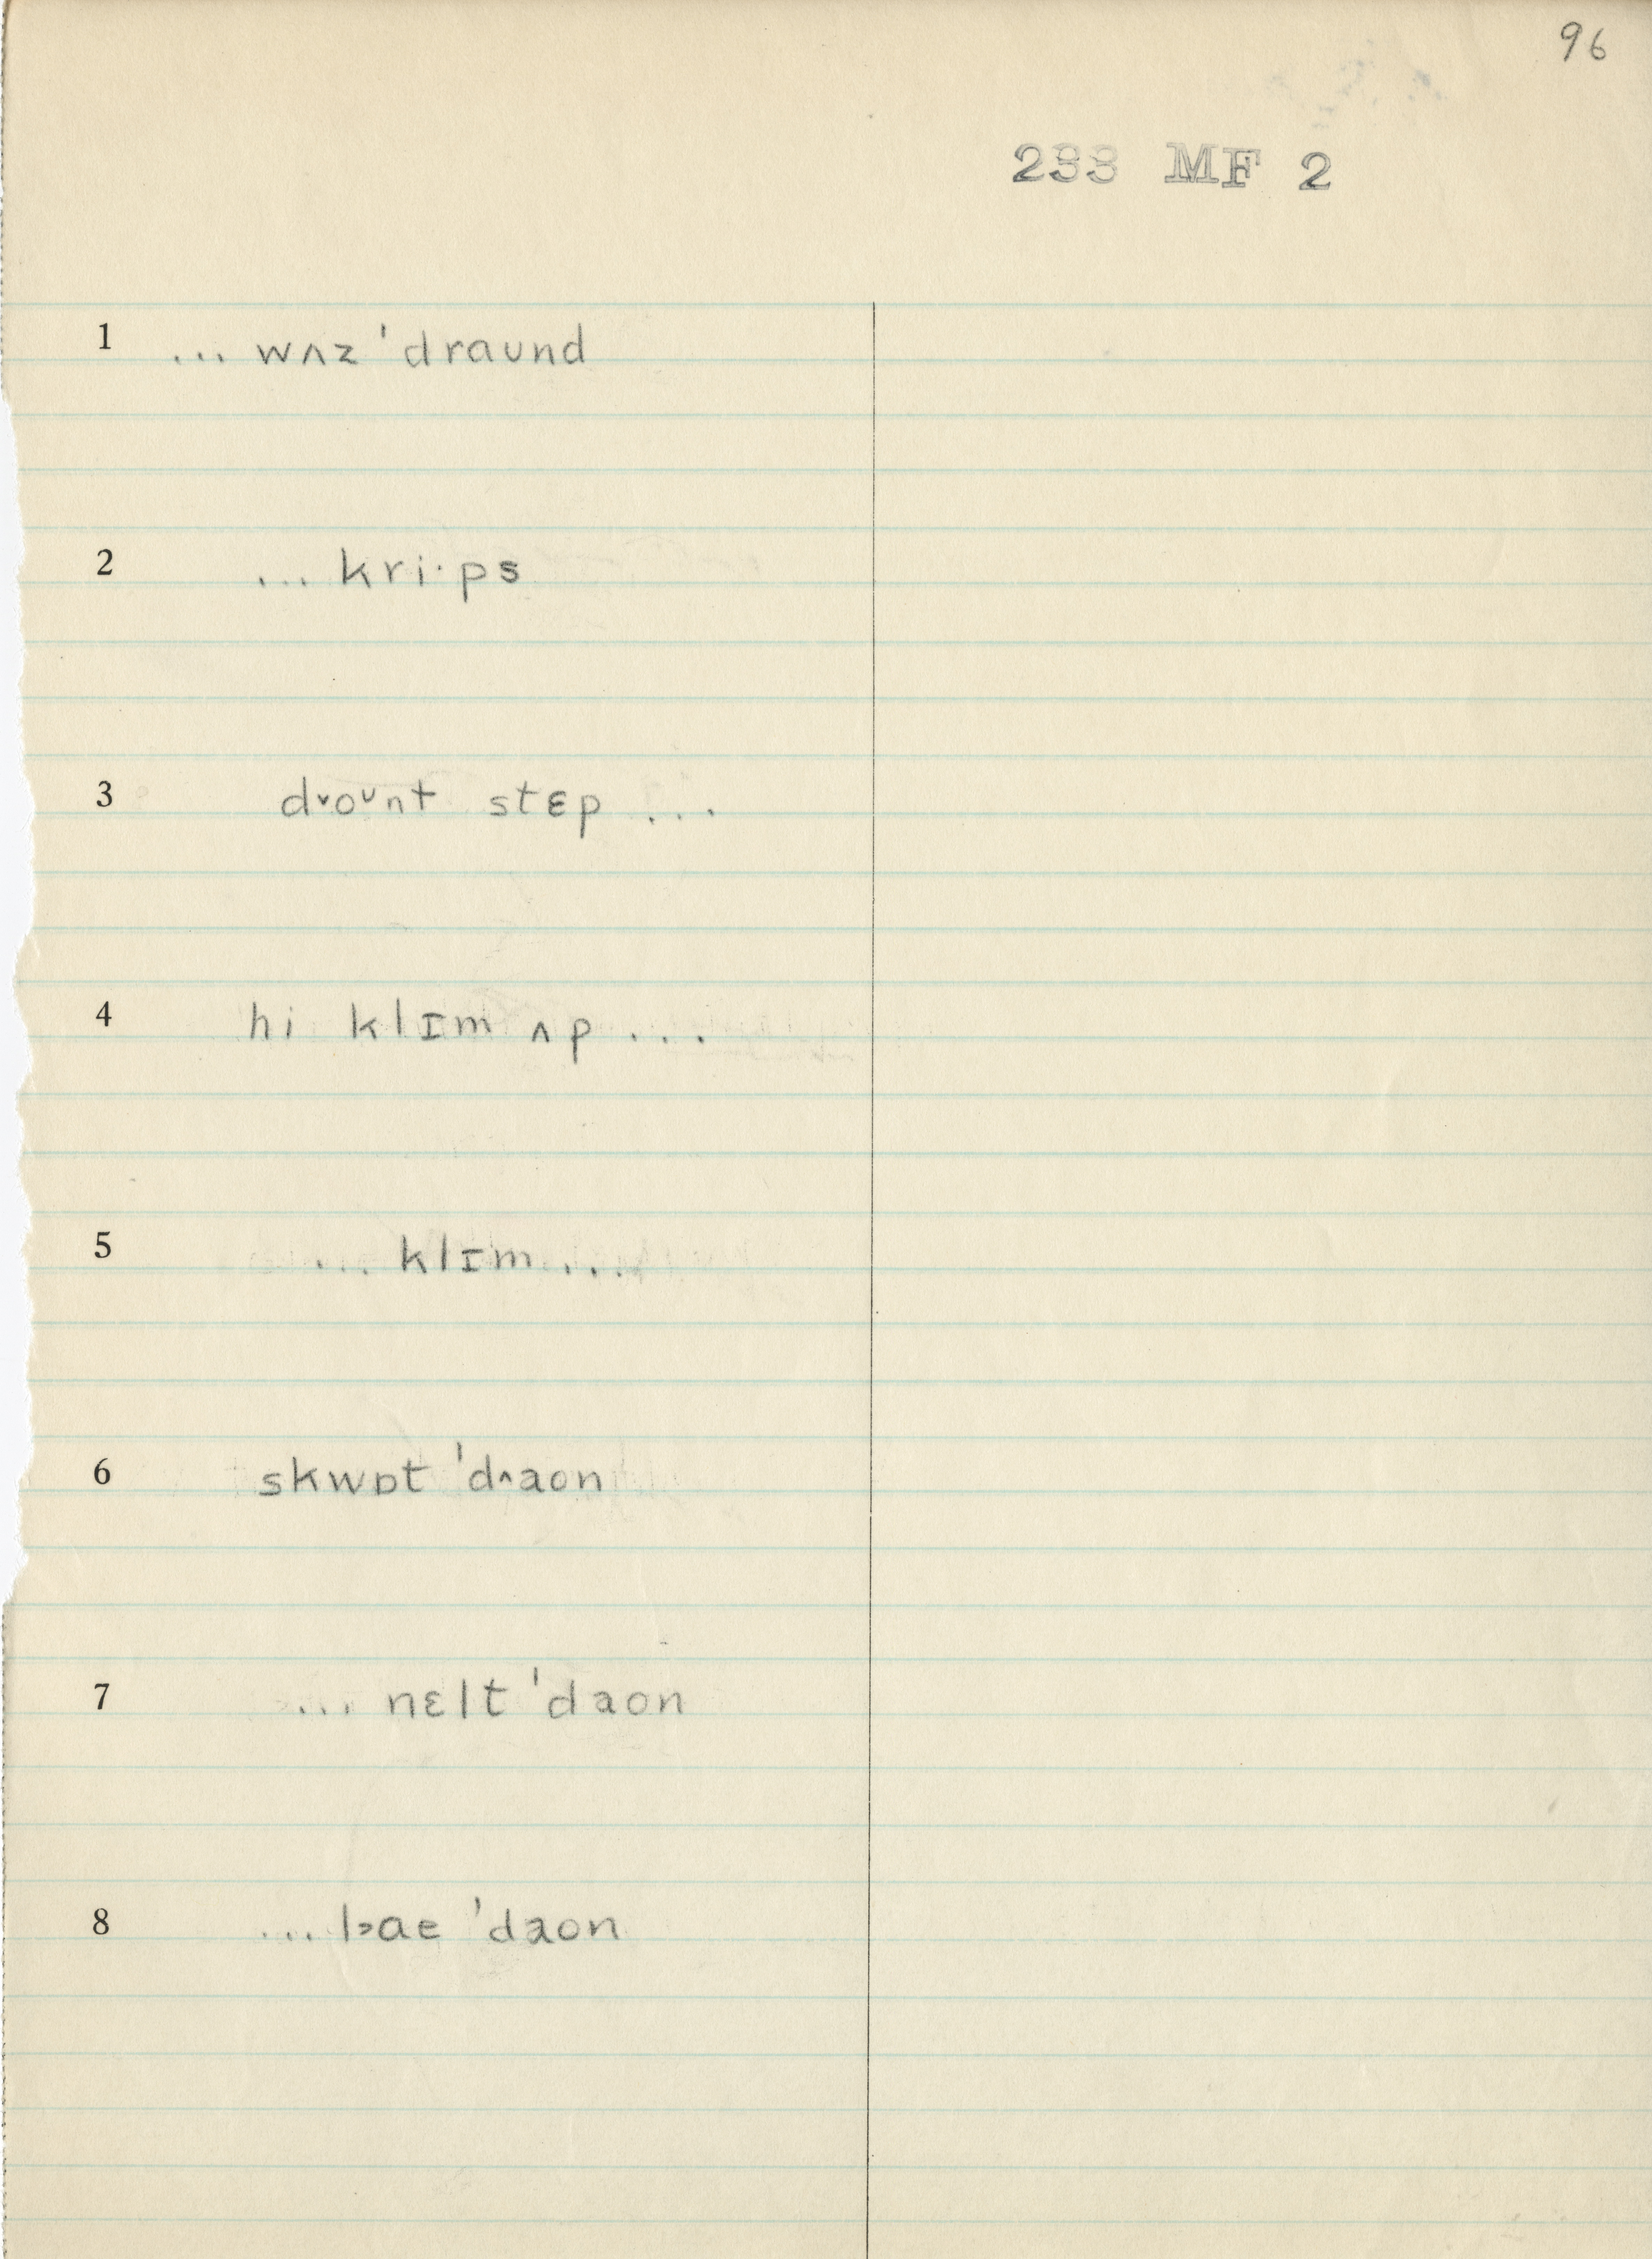 96
233 MF 2
1 ... wʌz ˈdraʊnd
2 ... kri·ps
3 d˅oᶷnt stɛp ...
4 hi klɪm ʌp ...
5 ... klɪm ...
6 skwɒt ˈd˄aon
7 ... nɛlt ˈdaon
8 ... l˃ae ˈdaon